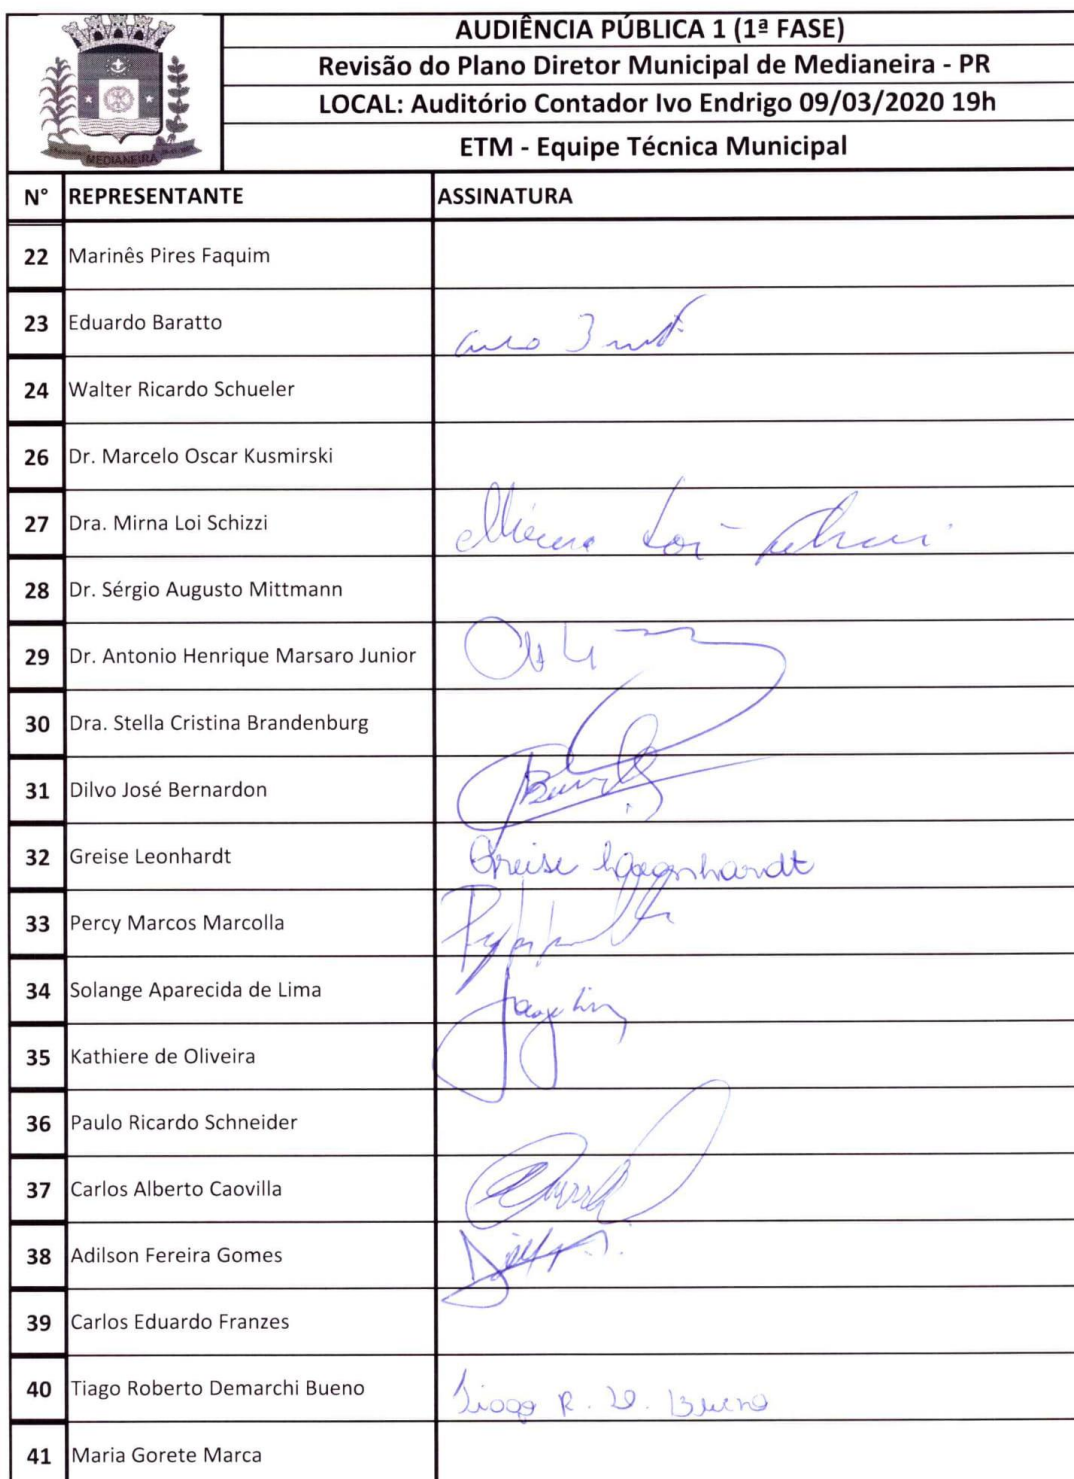 AUDIÊNCIA PÚBLICA 1 (1ª FASE)
Revisão do Plano Diretor Municipal de Medianeira - PR
LOCAL: Auditório Contador Ivo Endrigo 09/03/2020 19h
ETM - Equipe Técnica Municipal
MEDIANEIRA
N° REPRESENTANTE ASSINATURA
22 Marinês Pires Faquim
23 Eduardo Baratto
24 Walter Ricardo Schueler
26 Dr. Marcelo Oscar Kusmirski
27 Dra. Mirna Loi Schizzi Mirna Loi
28 Dr. Sérgio Augusto Mittmann
29 Dr. Antonio Henrique Marsaro Junior
30 Dra. Stella Cristina Brandenburg
31 Dilvo José Bernardon
32 Greise Leonhardt Greise
33 Percy Marcos Marcolla
34 Solange Aparecida de Lima
35 Kathiere de Oliveira
36 Paulo Ricardo Schneider
37 Carlos Alberto Caovilla
38 Adilson Fereira Gomes
39 Carlos Eduardo Franzes
40 Tiago Roberto Demarchi Bueno Tiago R. D. Bueno
41 Maria Gorete Marca